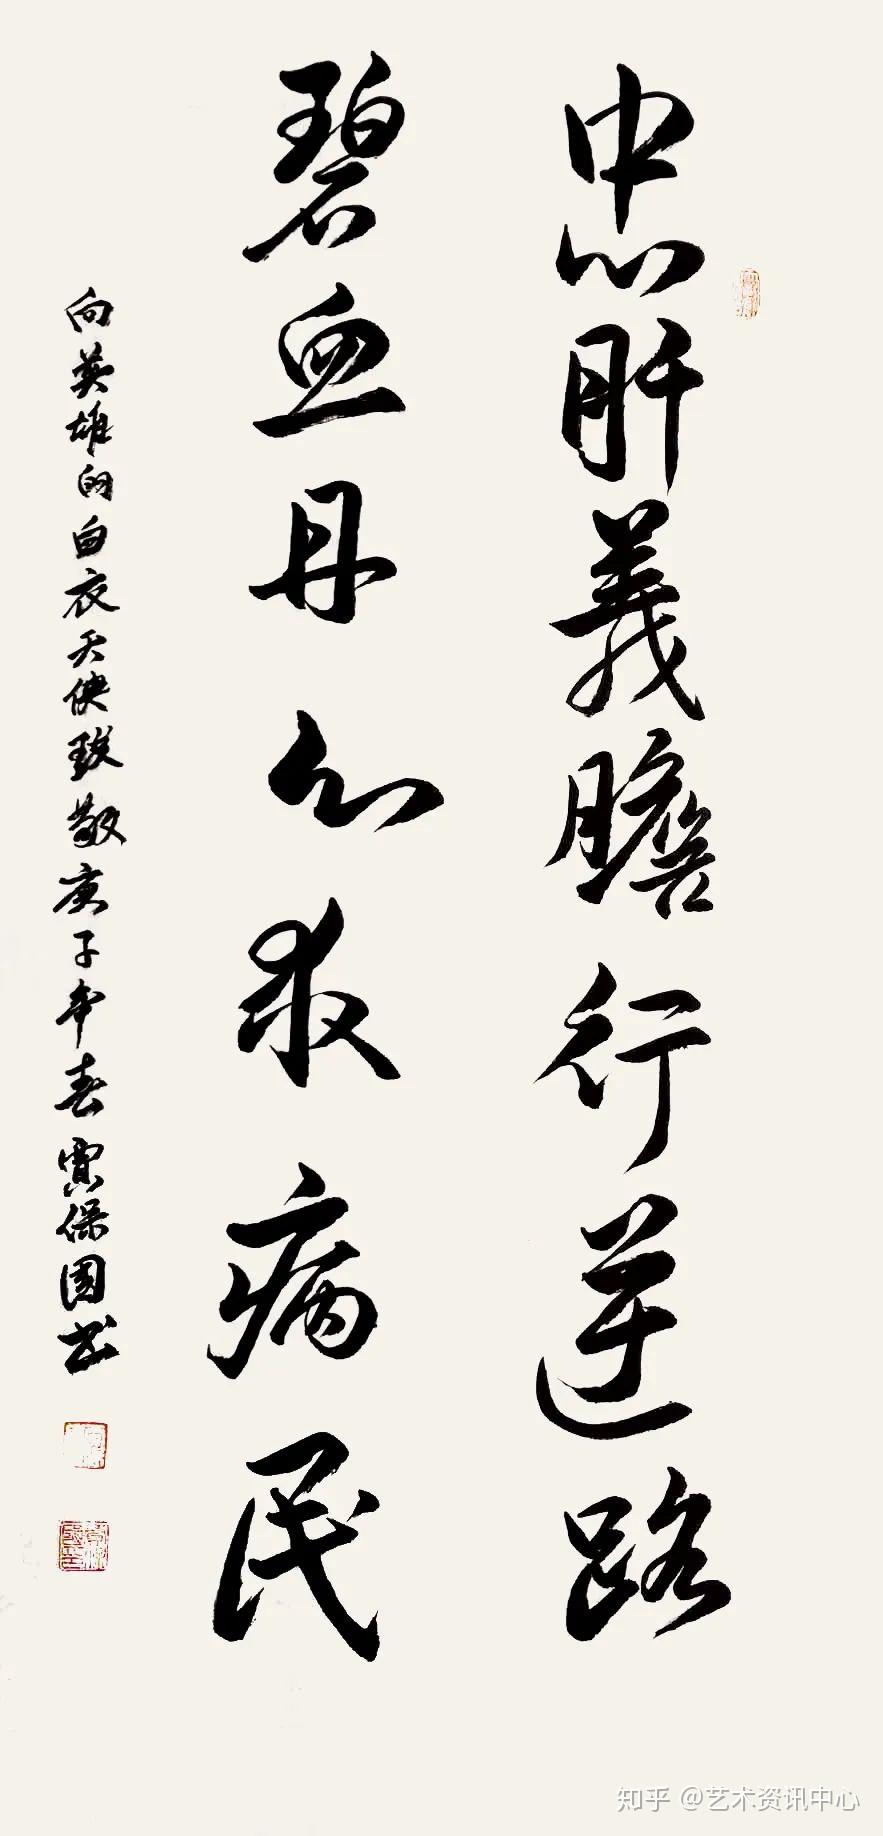 忠肝義膽行逆路
碧血丹心救病民
向英雄的白衣天使致敬庚子年春保國书
知乎 @艺术资讯中心